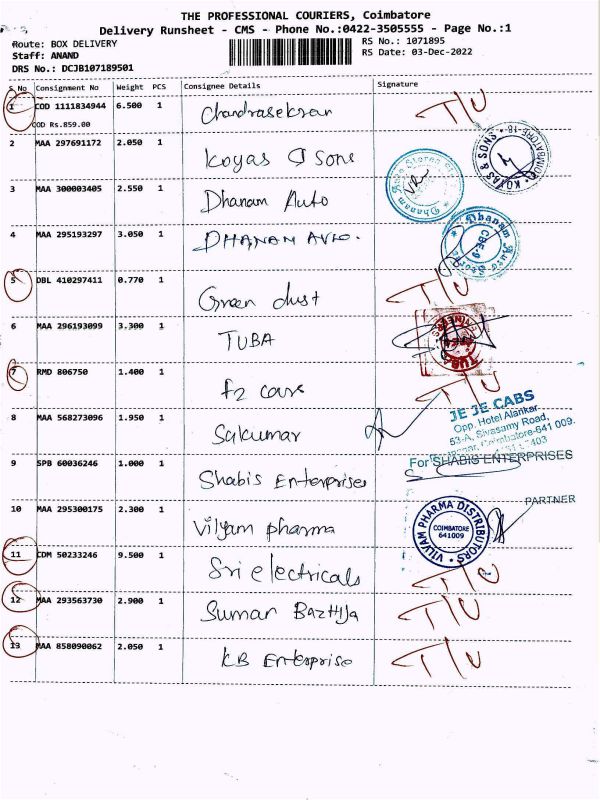 THE PROFESSIONAL COURIERS, Coimbatore
Delivery Runsheet - CMS - Phone No.:0422-3505555 - Page No.:1
Route: BOX DELIVERY
RS No.: 1071895
Staff: ANAND
RS Date: 03-Dec-2022
DRS No.: DCJB107189501
S.No Consignment No Weight PCS Consignee Details Signature
1 COD 1111834944 6.500 1 Chandrasekran T/U
COD Rs.859.00
2 MAA 297691172 2.050 1 Koyas & Sons KOYAS & SONS
3 MAA 300003405 2.550 1 Dhanam Auto Dhanam Auto Stores
4 MAA 295193297 3.050 1 DHANAM AUTO. Dhanam Auto Stores CBE-9
5 DBL 410297411 0.770 1 Green dust T/U
6 MAA 296193099 3.300 1 TUBA TUBA
7 RMD 806750 1.400 1 f2 cars T/U
8 MAA 568273096 1.950 1 Sakumar JE JE CABS
Opp. Hotel Alankar,
53-A, Sivasamy Road,
Coimbatore-641 009.
9 SPB 60036246 1.000 1 Shabis Enterprises For SHABIS ENTERPRISES
PARTNER
10 MAA 295300175 2.300 1 Vilyam pharma VILVAM PHARMA DISTRIBUTORS COIMBATORE 641009
11 CDM 50233246 9.500 1 Sri electricals T/U
12 MAA 293563730 2.900 1 Suman T/U
13 MAA 858090062 2.050 1 KB Enterprise T/U